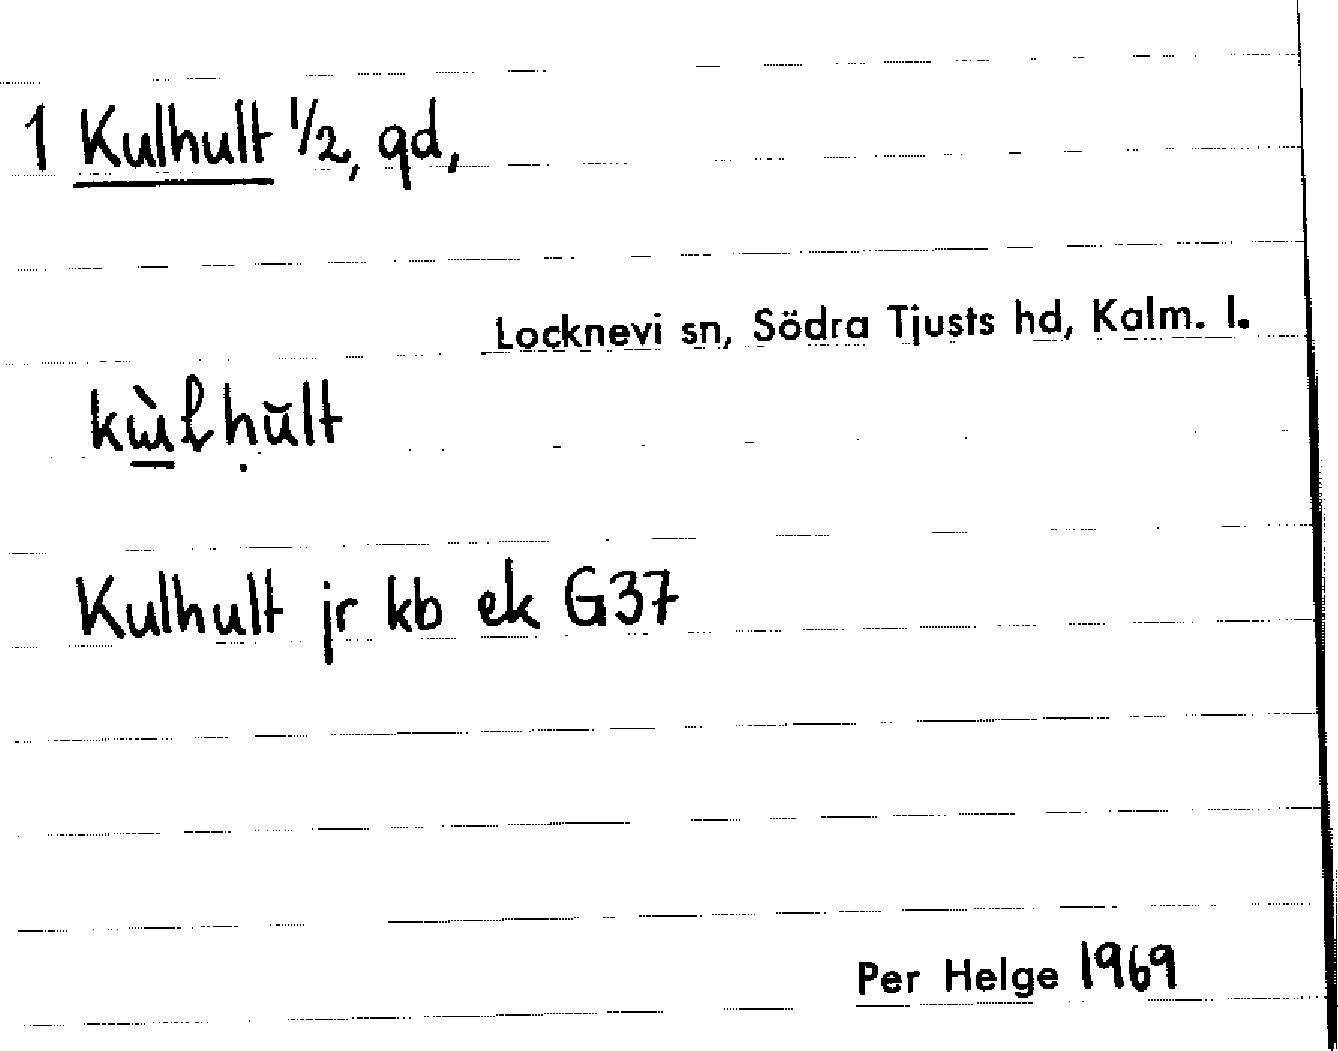 1 Kulhult 1/2, qd,
Locknevi sn, Södra Tjusts hd, Kalm. l.
Kulhult jr kb ek G37
Per Helge 1969